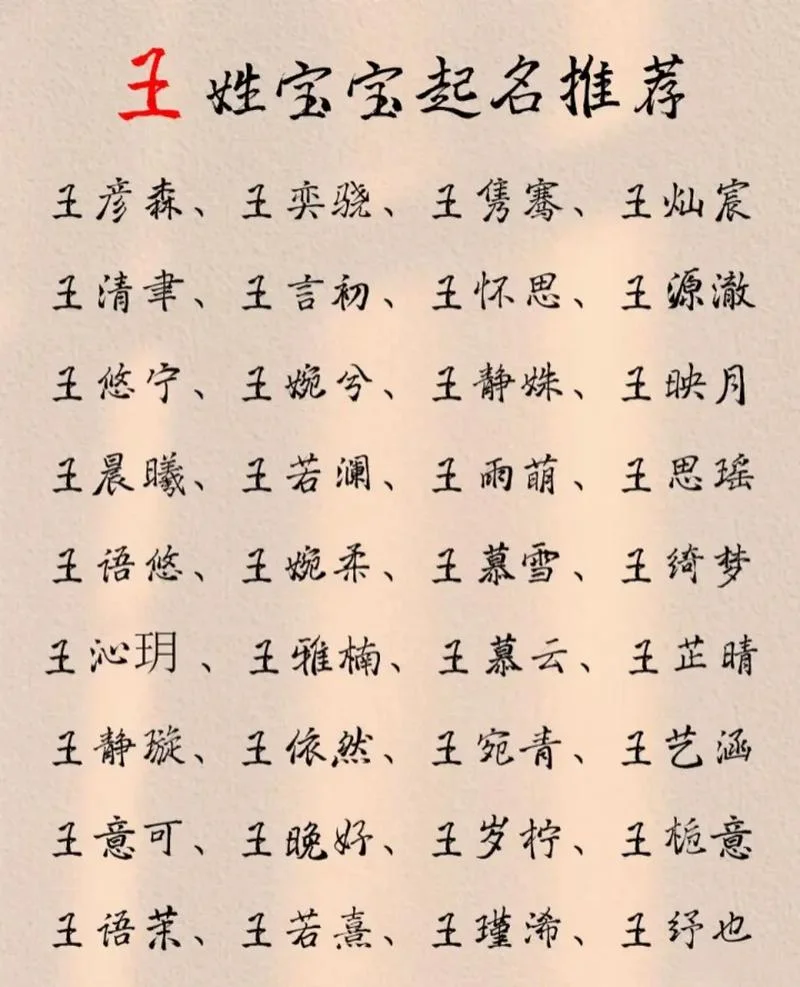 王姓宝宝起名推荐
王彦森、王奕骁、王隽骞、王灿宸
王清聿、王言初、王怀思、王源澈
王悠宁、王婉兮、王静姝、王映月
王晨曦、王若澜、王雨萌、王思瑶
王语悠、王婉柔、王慕雪、王绮梦
王沁玥、王雅楠、王慕云、王芷晴
王静璇、王依然、王宛青、王艺涵
王意可、王晚妤、王岁柠、王栀意
王语茉、王若熹、王瑾浠、王纾也